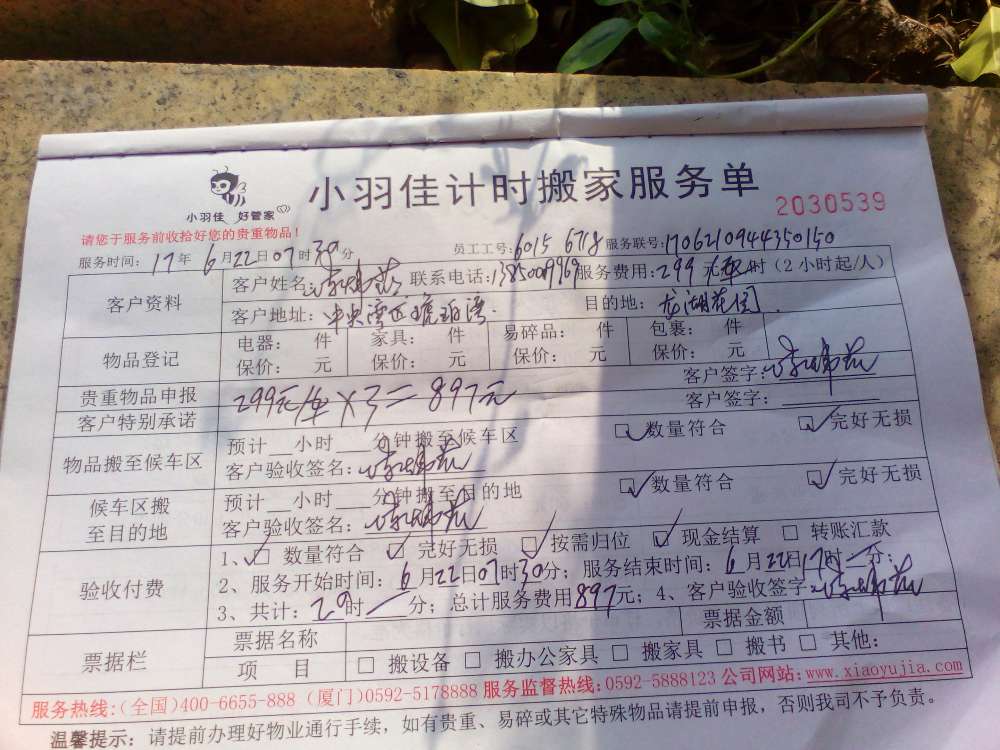 小羽佳 好管家
小羽佳计时搬家服务单
2030539
请您于服务前收拾好您的贵重物品！
服务时间：17年 6月22日07时30分 员工工号：6015 6718 服务联号：1706210944350150
客户资料
客户姓名： 联系电话： 服务费用：299元 时（2小时起/人）
客户地址：中央湾区琥珀湾 目的地：龙湖花园
物品登记
电器： 件 家具： 件 易碎品： 件 包裹： 件
保价： 元 保价： 元 保价： 元 保价： 元
客户签字：
贵重物品申报 299元/车×3=897元
客户特别承诺 客户签字：
物品搬至候车区
预计__小时__分钟搬至候车区 数量符合 完好无损
客户验收签名：
候车区搬至目的地
预计__小时__分钟搬至目的地 数量符合 完好无损
客户验收签名：
验收付费
1、 数量符合 完好无损 按需归位 现金结算 转账汇款
2、服务开始时间：6月22日07时30分；服务结束时间：6月22日17时一分；
3、共计：29时一分；总计服务费用897元；4、客户验收签字：
票据栏
票据名称 票据金额
项 目 搬设备 搬办公家具 搬家具 搬书 其他：
服务热线：（全国）400-6655-888 （厦门）0592-5178888 服务监督热线：0592-5888123 公司网站：www.xiaoyujia.com
温馨提示：请提前办理好物业通行手续，如有贵重、易碎或其它特殊物品请提前申报，否则我司不予负责。